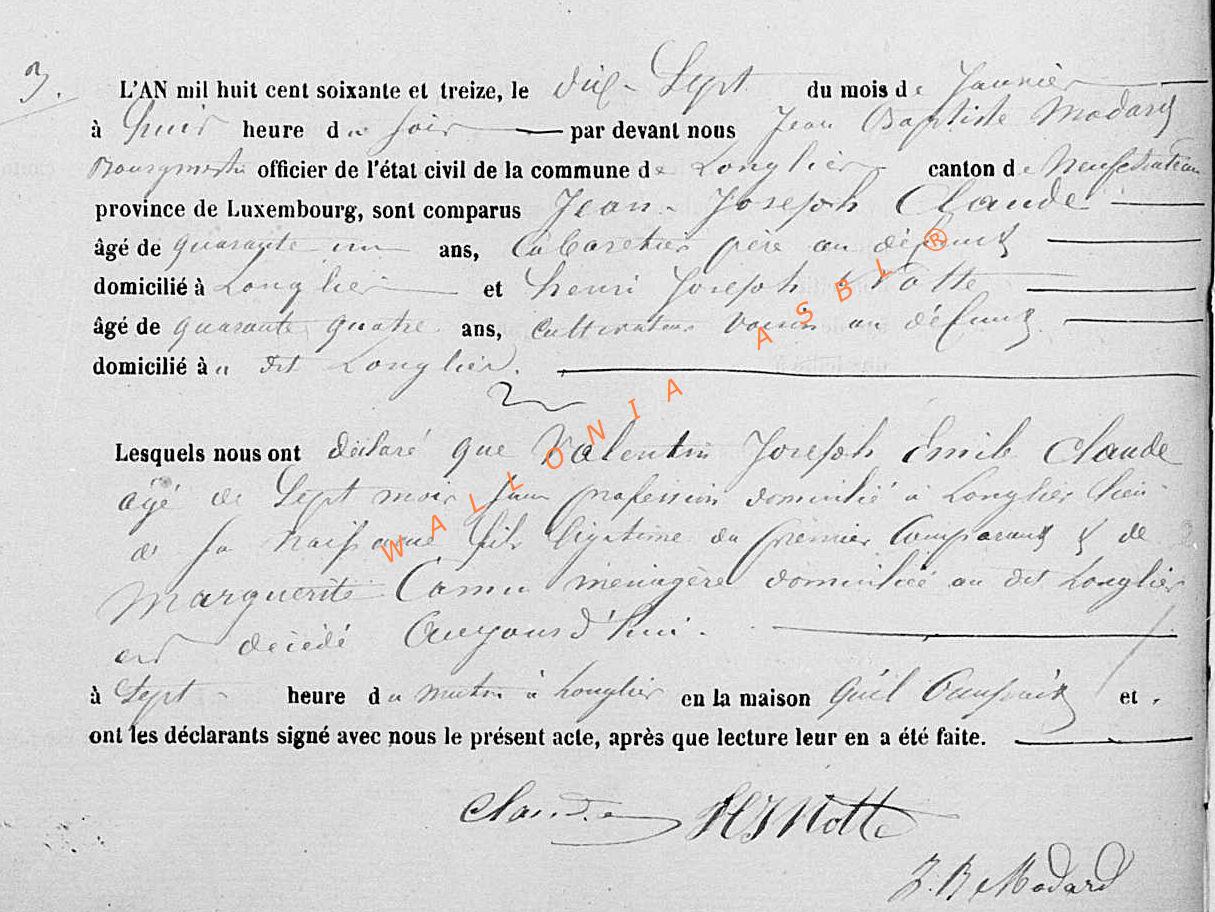 3.
L'AN mil huit cent soixante et treize, le dix-Sept du mois de Janvier
à heure du Soir par devant nous Jean Baptiste Modard
Bourgmestre officier de l'état civil de la commune de Longlier canton de Neufchateau
province de Luxembourg, sont comparus Jean-Joseph Claude
âgé de quarante un ans, Cabaretier père au défunt
domicilié à Longlier et henri Joseph Notte
âgé de quarante quatre ans, Cultivateur voisin au défunt
domicilié à u dit Longlier.
Lesquels nous ont déclaré que Valentin Joseph Emile Claude
âgé de Sept mois sans profession domicilié à Longlier lieu
de sa naissance fils légitime du premier Comparant & de
Marguerite Camu ménagère domiciliée au dit Longlier
est décédé Aujourd'hui.
à Sept heure du matin à Longlier en la maison qu'il et
ont les déclarants signé avec nous le présent acte, après que lecture leur en a été faite.
Claude HJ Notte
J. B Modard
WALLONIA ASBL ®